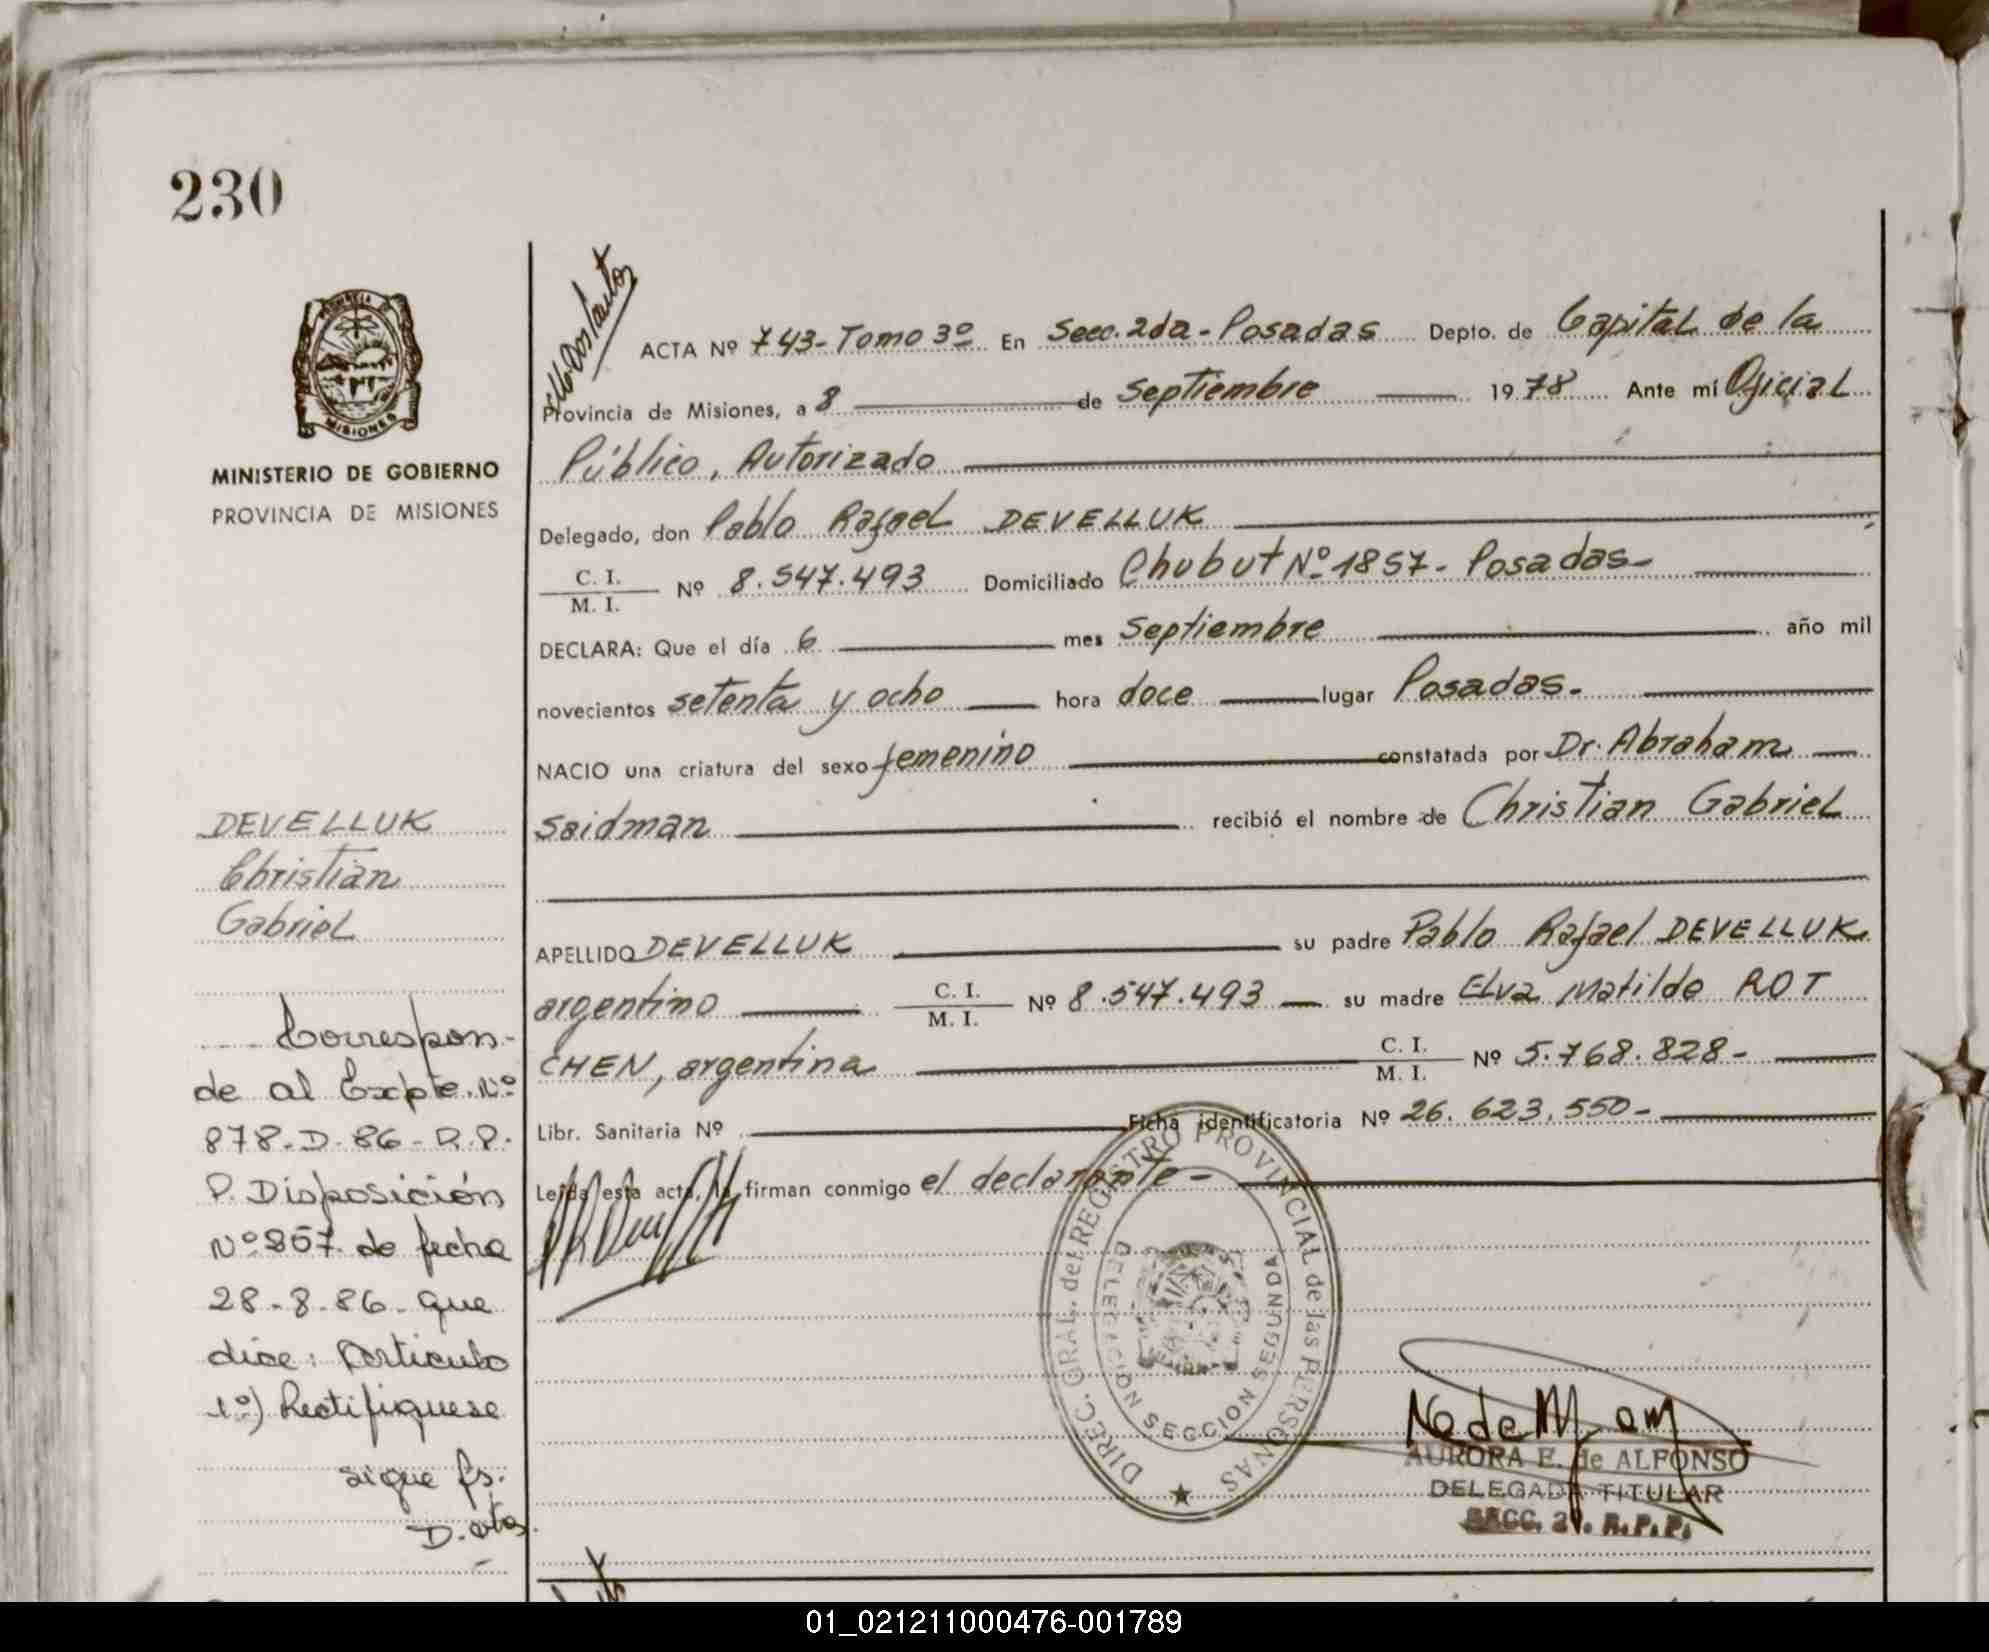 230
PROVINCIA DE
MISIONES
MINISTERIO DE GOBIERNO
PROVINCIA DE MISIONES
DEVELLUK
Christian
Gabriel
Correspon-
de al Expte. Nº
878-D-86-R.P.
P. Disposición
Nº 857 de fecha
28-8-86- que
dice: Articulo
1º) Rectifiquese
sigue fs.
D.
ACTA Nº 743-Tomo 3º En Secc. 2da-Posadas Depto. de Capital de la
Provincia de Misiones, a 8 de Septiembre 1978 Ante mí Oficial
Público, Autorizado
Delegado, don Pablo Rafael DEVELLUK
C. I.
M. I. Nº 8.547.493 Domiciliado Chubut Nº 1857- Posadas-
DECLARA: Que el día 6 mes Septiembre año mil
novecientos setenta y ocho hora doce lugar Posadas-
NACIO una criatura del sexo femenino constatada por Dr. Abraham
Saidman recibió el nombre de Christian Gabriel
APELLIDO DEVELLUK su padre Pablo Rafael DEVELLUK
argentino C. I.
M. I. Nº 8.547.493 su madre Elva Matilde ROT
CHEN, argentina C. I.
M. I. Nº 5.768.828-
Libr. Sanitaria Nº Ficha identificatoria Nº 26.623.550-
Leída esta acta, la firman conmigo el declarante-
DIREC. GRAL. del REGISTRO PROVINCIAL de las PERSONAS
DELEGACION SECCION SEGUNDA
AURORA E. de ALFONSO
DELEGADA TITULAR
SECC. 2ª. R.P.P.
01_021211000476-001789